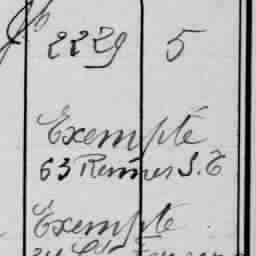 2229 5
Exempté
63 Rennes S.E
Exempte